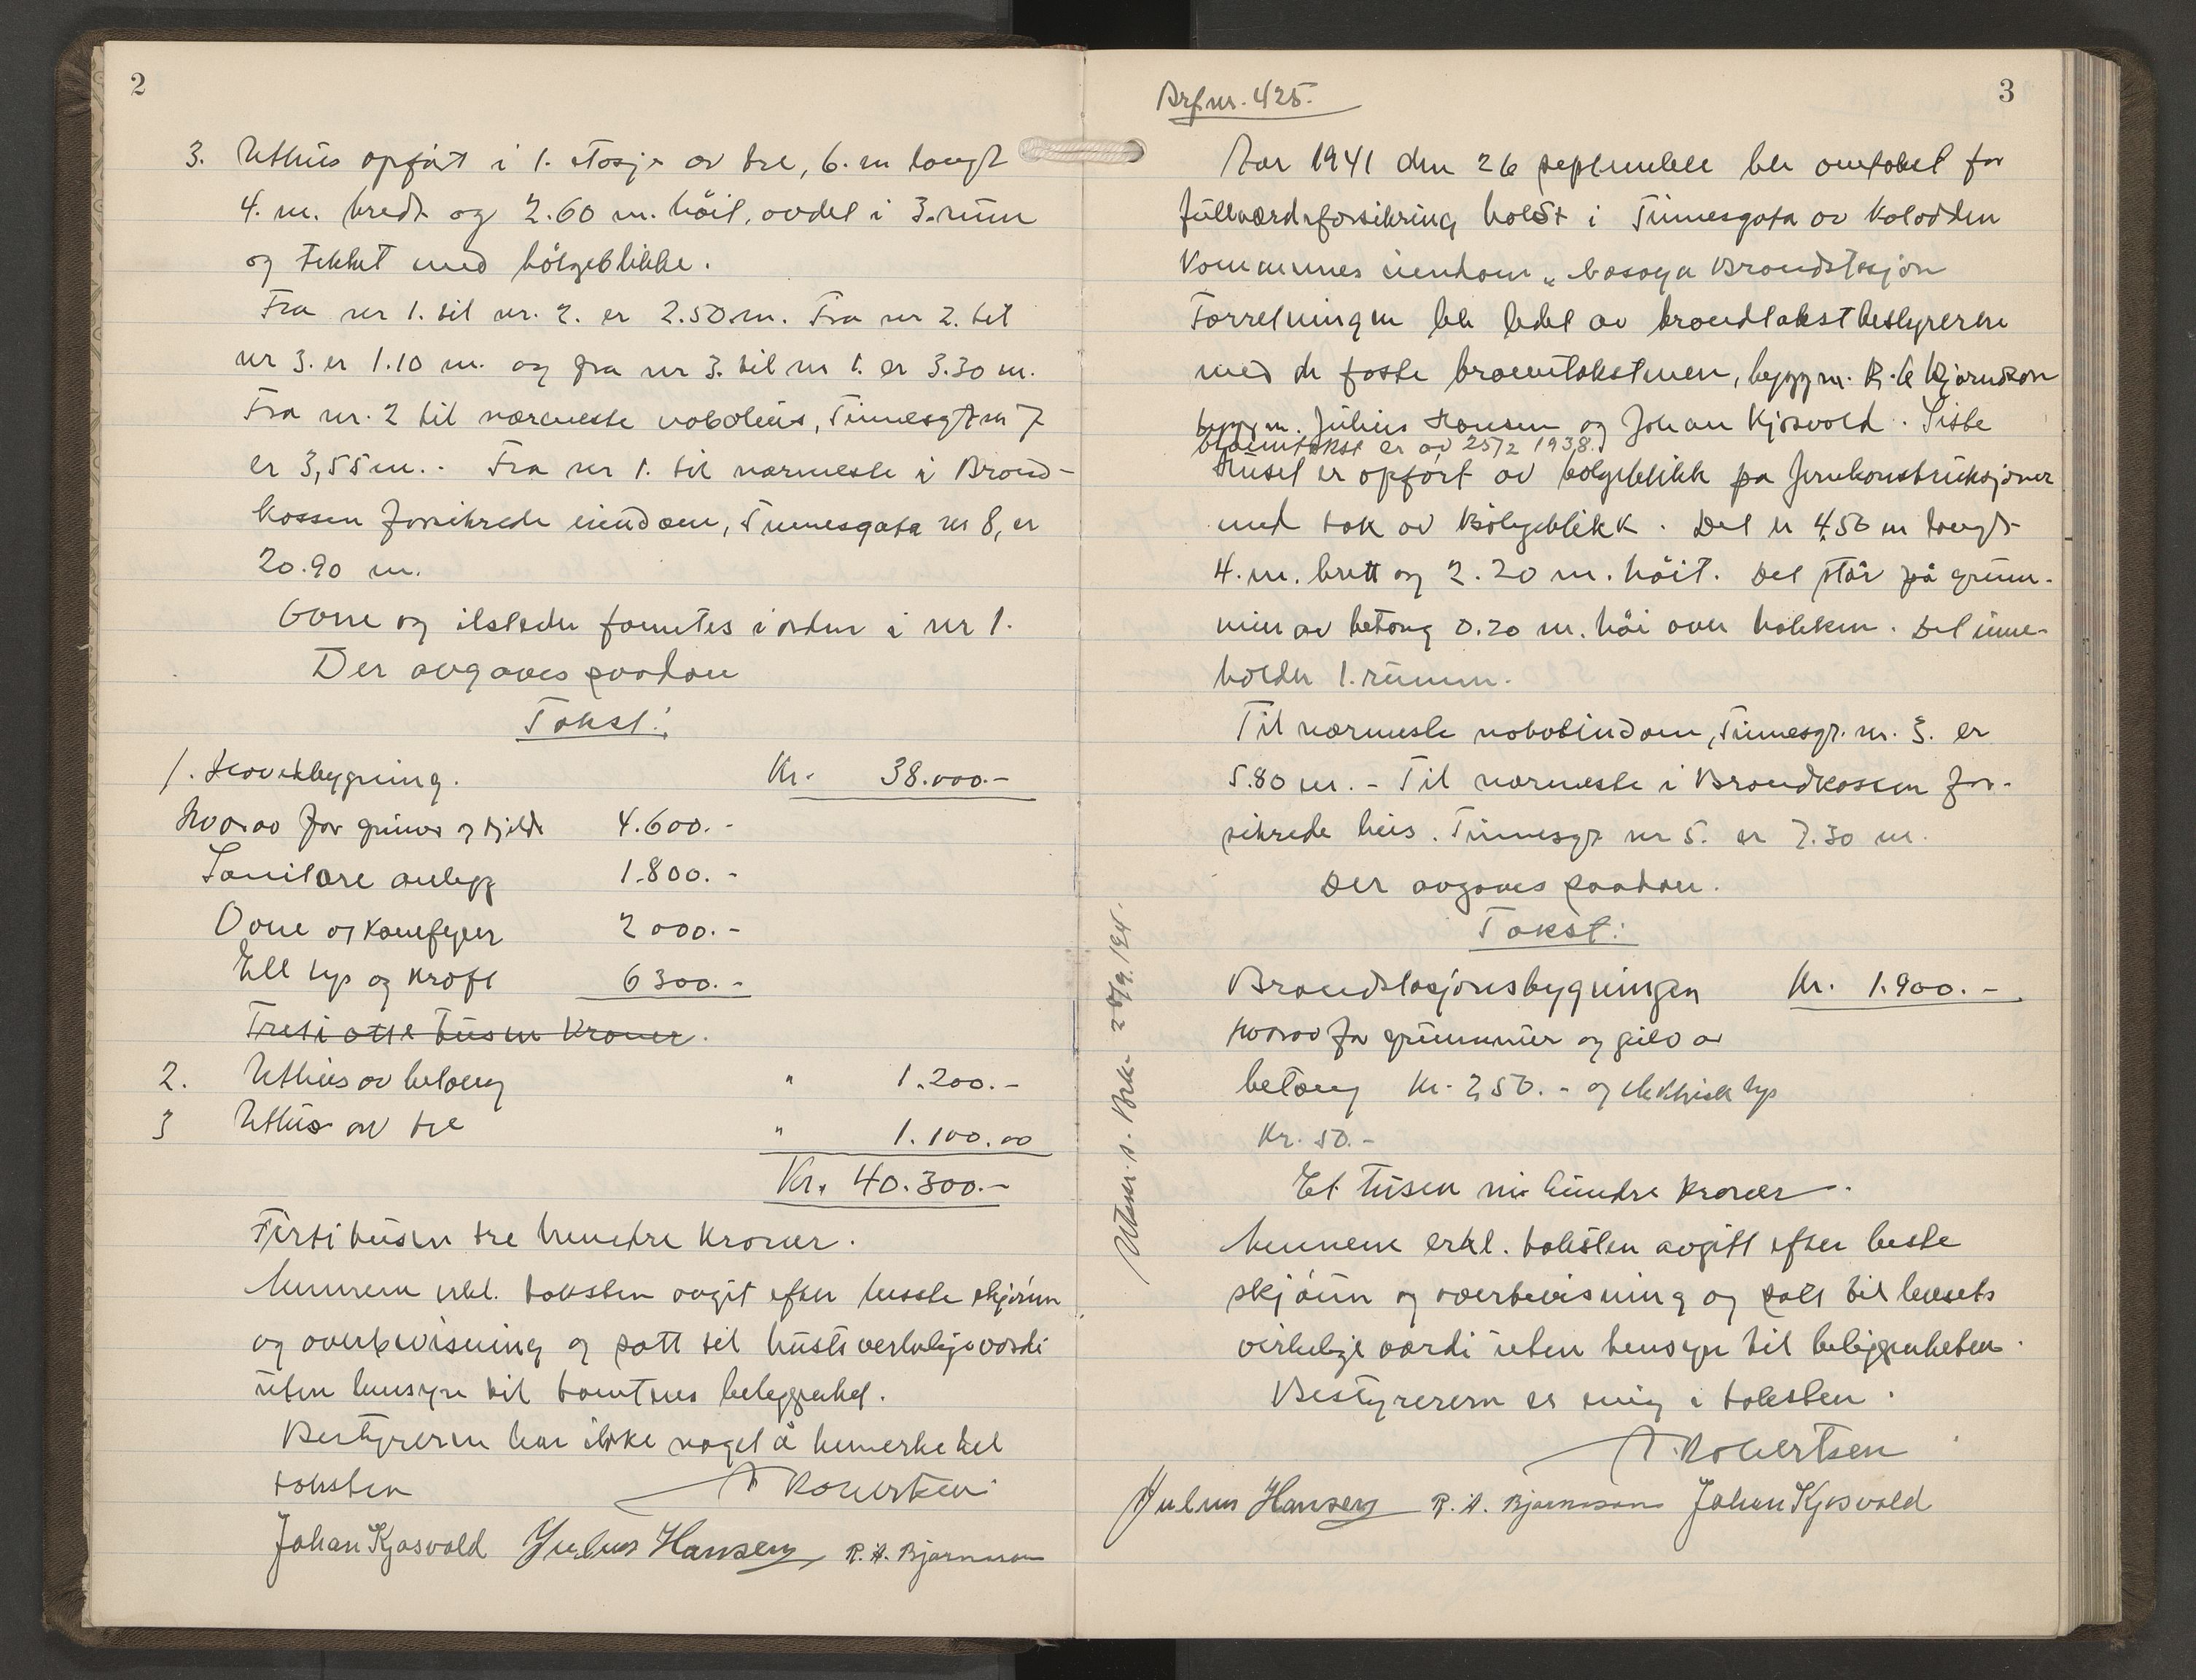 2
3. Uthus opført i 1. etasje av tre, 6. m langt
4. m. bredt og 2.60 m. höit, avdel i 3. rum
og tekket med bölgeblikke.
Fra nr 1. til nr. 2. er 2.50 m. Fra nr 2. til
nr 3. er 1.10 m. og fra nr 3. til nr 1. er 3.30 m.
Fra nr. 2 til nærmeste nabohus, Tinnesgt nr 7
er 3,55 m. - Fra nr 1. til nærmeste i Brand-
kassen forsikrede eiendom, Tinnesgata nr 8, er
20.90 m.
Ovne og ildsteder fanntes i orden i nr 1.
Der avgaves saadan
Takst:
1. Hovedbygning. Kr. 38.000.-
Hvorav for grunmur og kjelder 4.600.-
Sanitære anlegg 1.800.-
Ovne og kamefyer 2000.-
Ell lys og kraft 6300.-
Tretti otte tusen Kroner.
2. Uthus av betong " 1.200.-
3 Uthus av tre " 1.100.00
Kr. 40.300.-
Firti tusen tre hundre kroner.
Mennene erkl. taksten avgit efter beste skjönn
og overbevisning og satt til husets verkelige værdi
uten hensyn til tomtens beleggenhet.
Bestyreren har ikke noget å bemerke til
taksten A Robertsen
Johan Kjøsvold Julius Hansen R. A. Bjarnason
3
Brf.nr. 425.
Aar 1941 den 26 september ble omtakst for
fullverdiforsikring holdt i Tinnesgata av
Kommunes eiendom, Brandstasjon
Forretningen ble ledet av brandtakstbestyreren
med de faste branntakstmen, byggm. R. A. Bjarnason
byggm. Julius Hansen og Johan Kjøsvold. Siste
branntakst er av 25/2 1938.
Huset er opfört av bölgeblikk pa Jernkonstruksjoner
med tak av Bölgeblikk. Det er 4.50 m langt
4. m. brett og 2.20 m. höit. Det står på grunn-
mur av betong 0.20 m. höi over bakken. Det inne-
holder 1. rumm.
Til nærmeste naboeiendom, Tinnesgt. nr. 3. er
5.80 m. - Til nærmeste i Brandkassen for-
sikrede hus. Tinnesgt nr 5. er 7.30 m.
Der avgaves saadan.
Takst:
Brandstasjonsbygningen Kr. 1.900.-
Hvorav for grunnmur og gulv av
betong Kr. 250.- og elektrisk lys
Kr. 50.-
Et tusen ni hundre kroner.
Mennene erkl. taksten avgitt efter beste
skjönn og overbevisning og satt til husets
virkelige værdi uten hensyn til beliggenheten.
Bestyreren er enig i taksten.
A. Robertsen
Julius Hansen R. A. Bjarnason Johan Kjøsvold